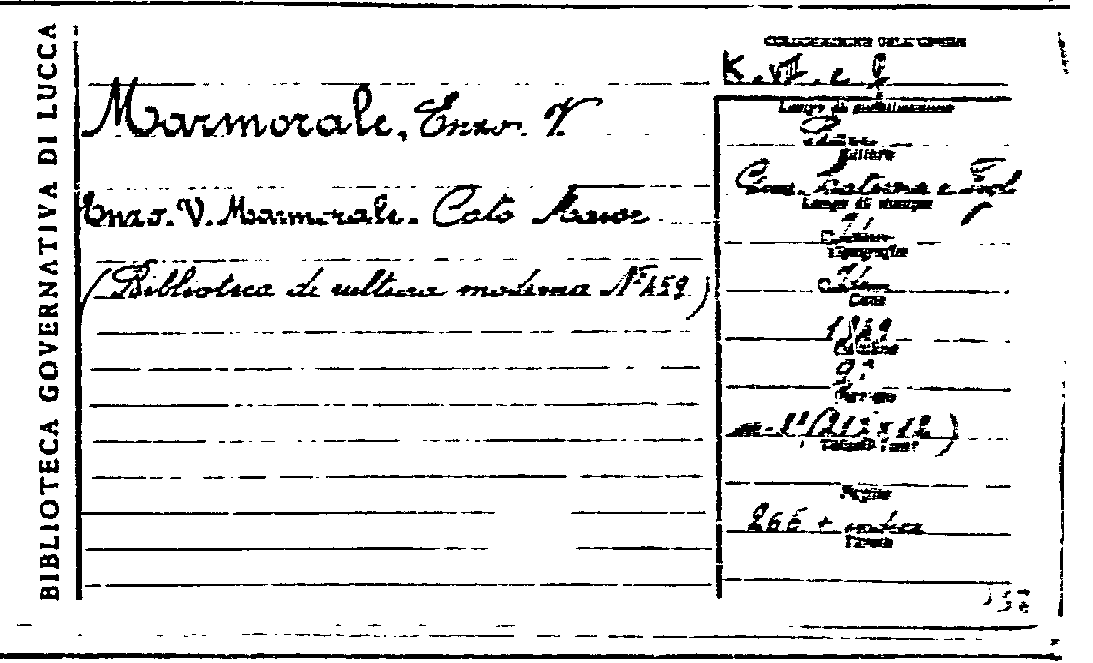 BIBLIOTECA GOVERNATIVA DI LUCCA
Marmorale, Enzo. V.
Enzo. V. Marmorale. Cato Maior
(Biblioteca di cultura moderna Nº 459)
COLLOCAZIONE DELL'OPERA
K. VII. e
Luogo di pubblicazione
Editore
Gius. Laterza e Figli
Luogo di stampa
Tipografia
Data
Edizione
2ª
Formato
Volumi
Pagine
266 + indice
Tavole